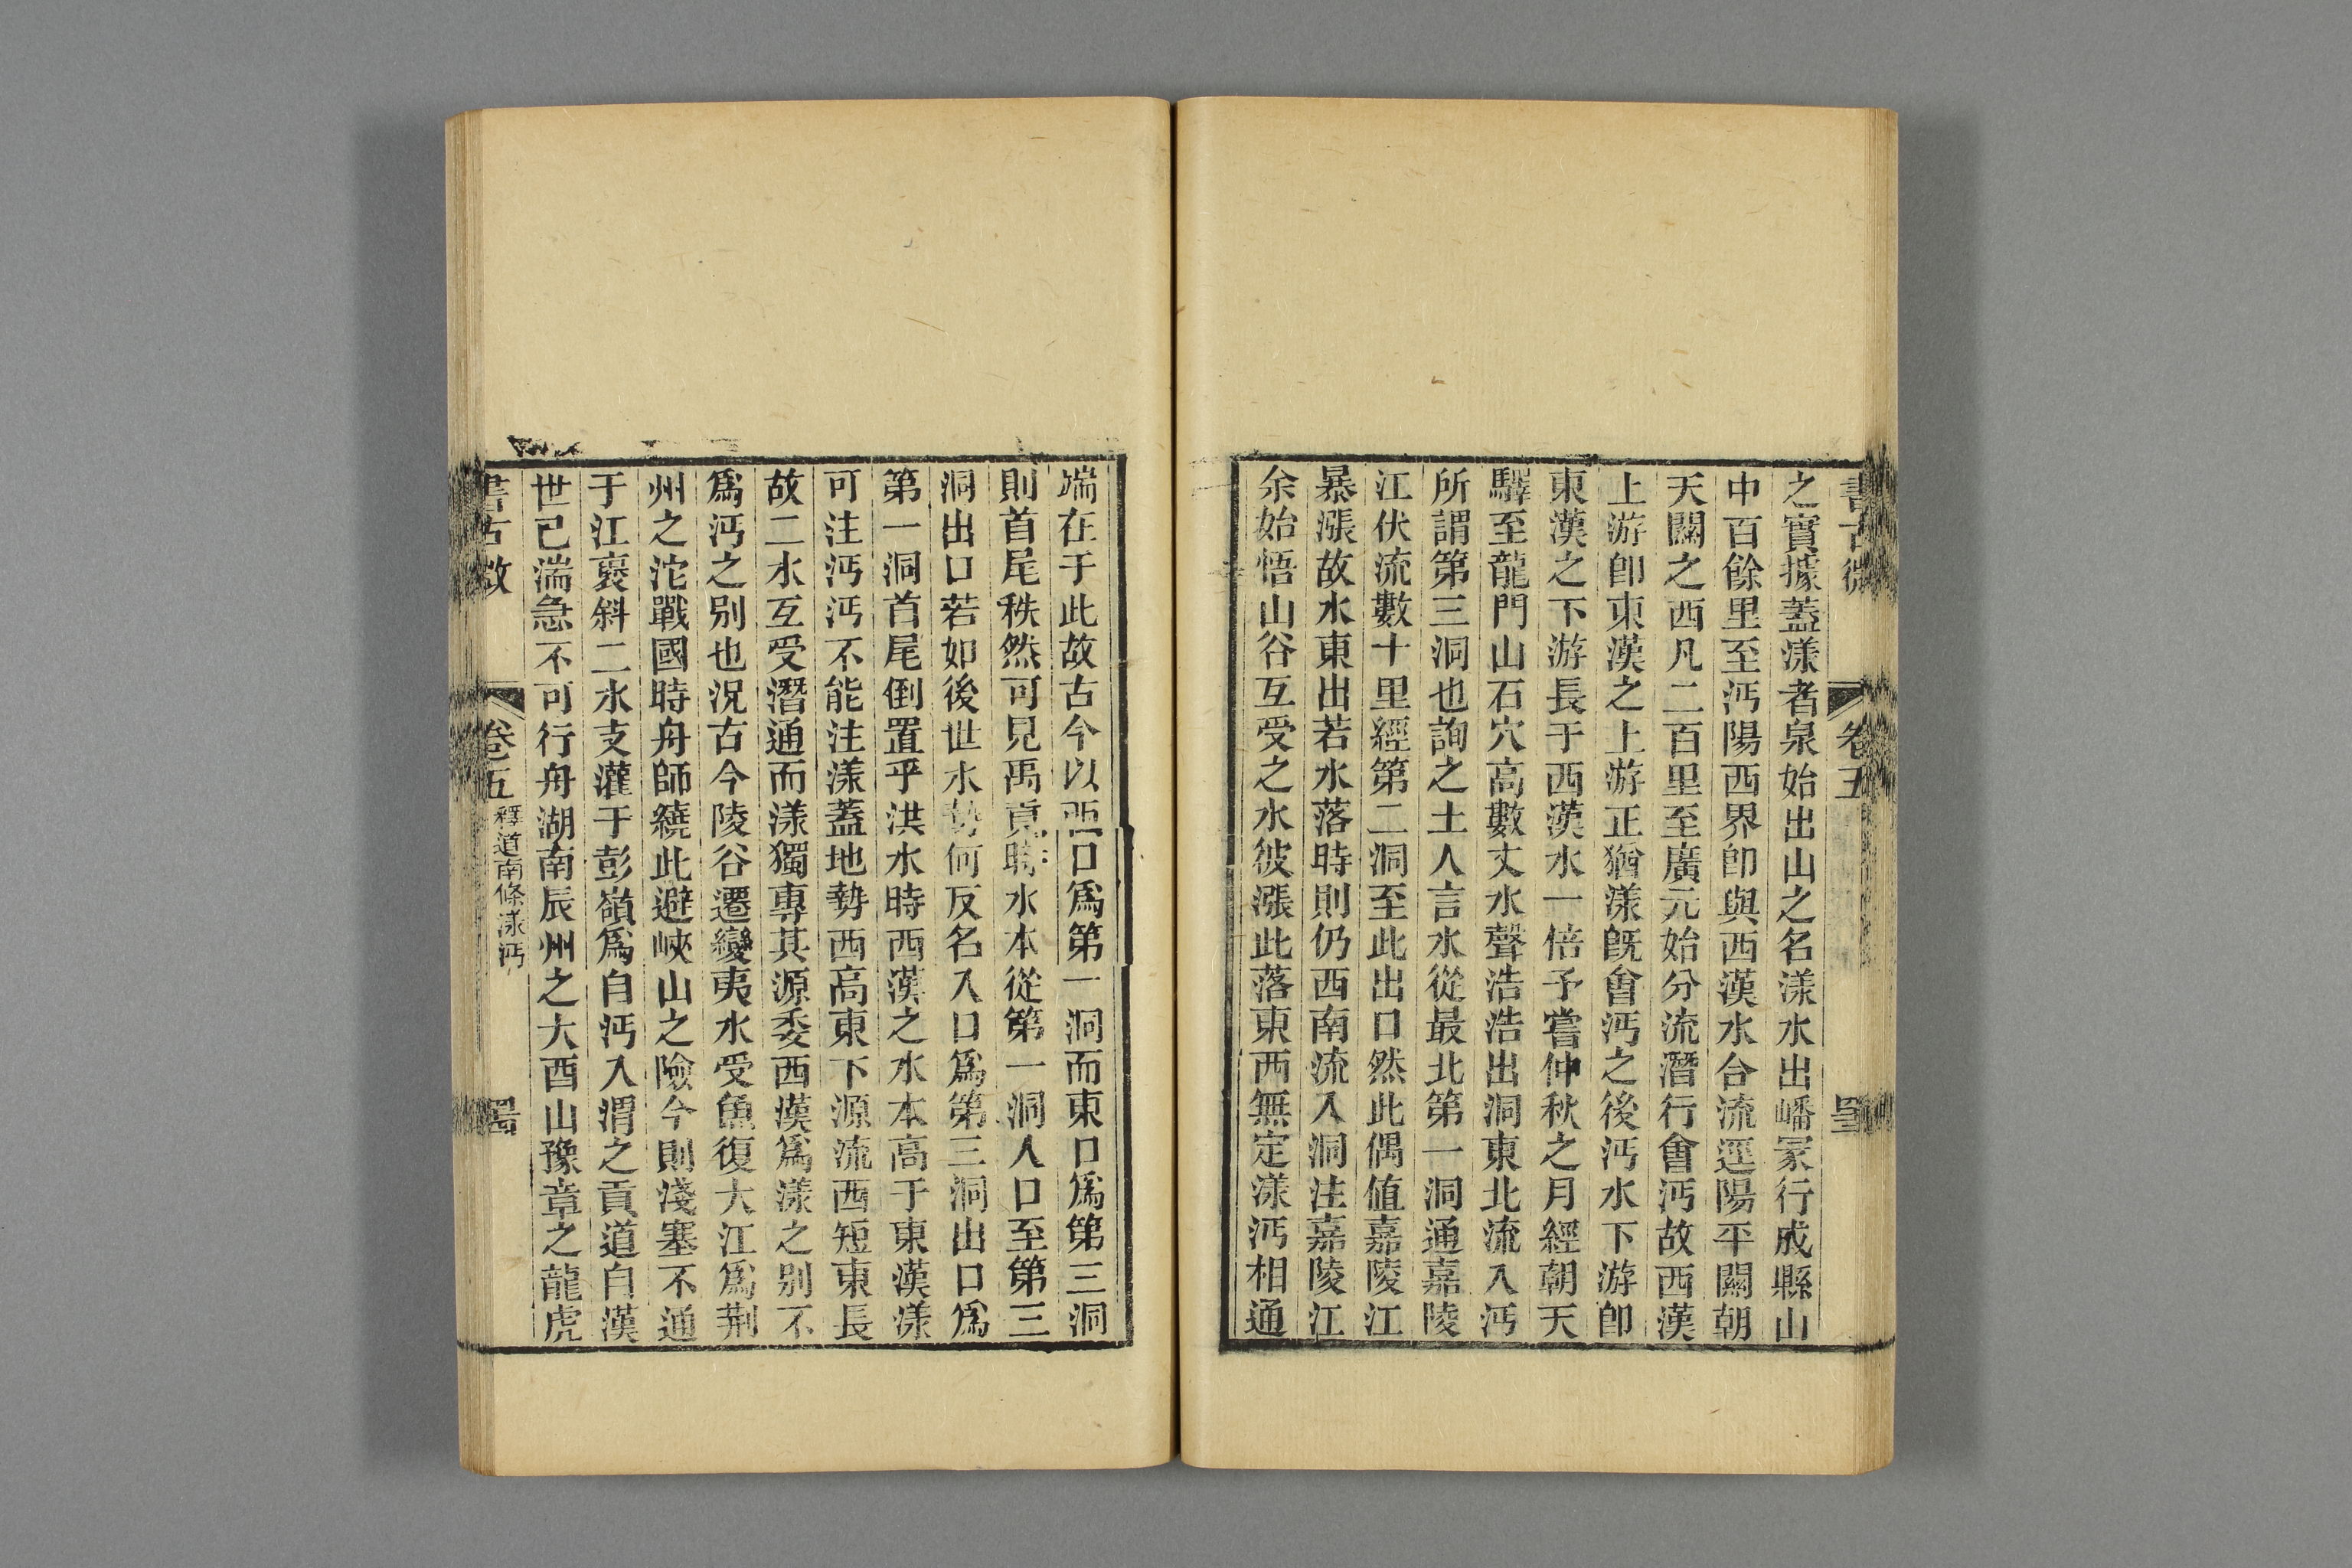 書古微 卷五
之實據蓋漾者泉始出山之名漾水出嶓冢行成縣山
中百餘里至沔陽西界卽與西漢水合流逕陽平關朝
天關之西凡二百里至廣元始分流潛行會沔故西漢
上游卽東漢之上游正猶漾旣會沔之後沔水下游卽
東漢之下游長于西漢水一倍予嘗仲秋之月經朝天
驛至龍門山石穴高數丈水聲浩浩出洞東北流入沔
所謂第三洞也詢之土人言水從最北第一洞通嘉陵
江伏流數十里經第二洞至此出口然此偶値嘉陵江
暴漲故水東出若水落時則仍西南流入洞注嘉陵江
余始悟山谷互受之水彼漲此落東西無定漾沔相通
端在于此故古今以西口爲第一洞而東口爲第三洞
則首尾秩然可見禹貢時水本從第一洞人口至第三
洞出口若如後世水勢何反名入口爲第三洞出口爲
第一洞首尾倒置乎洪水時西漢之水本高于東漢漾
可注沔沔不能注漾蓋地勢西高東下源流西短東長
故二水互受潛通而漾獨專其源委西漢爲漾之別不
爲沔之別也況古今陵谷遷變夷水受魚復大江爲荆
州之沱戰國時舟師繞此避峽山之險今則淺塞不通
于江褒斜二水支灌于彭嶺爲自沔入渭之貢道自漢
世已湍急不可行舟湖南辰州之大酉山豫章之龍虎
書古微 卷五 釋道南條漾沔